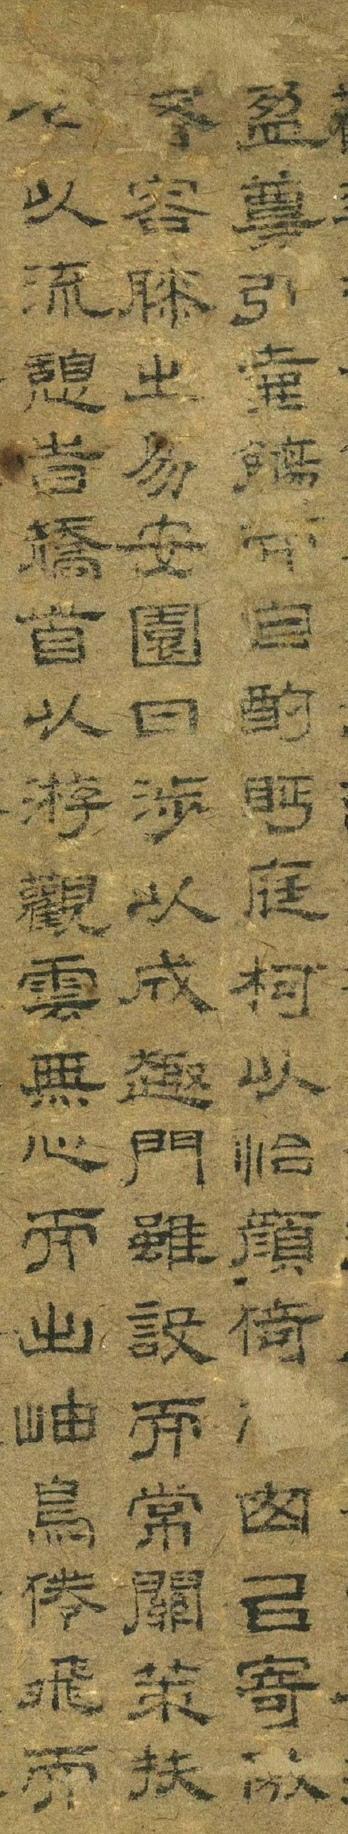 盈尊引壺觴而自酌眄庭柯以怡顏倚囱㠯寄傲
容膝之易安園日涉以成趣門雖設而常關策扶
以流憩旹矯首以游觀雲無心而出岫鳥倦飛而